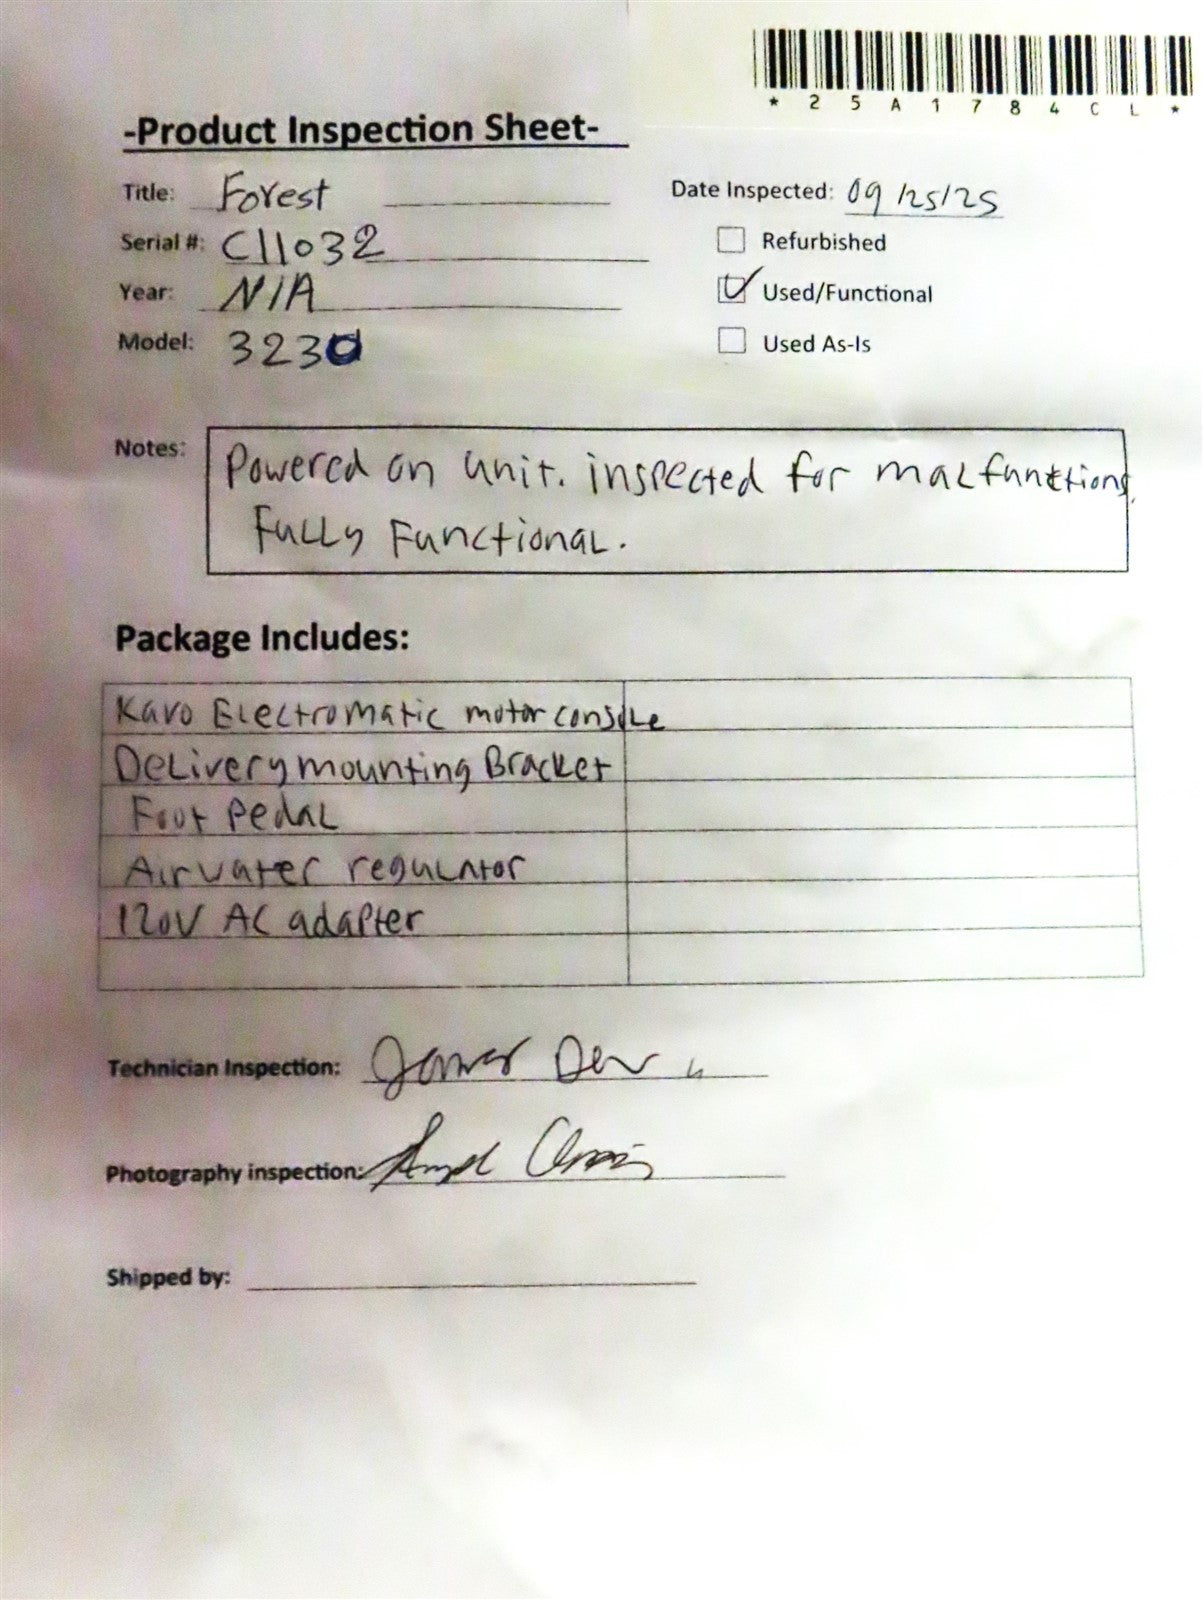 *25A1784CL*
-Product Inspection Sheet-
Title: Forest
Date Inspected: 09/25/25
Serial #: C11032
Refurbished
Year: N/A
Used/Functional
Model: 3230
Used As-Is
Notes: Powered on unit. inspected for malfunctions.
Fully Functional.
Package Includes:
Kavo Electromatic motor console
Delivery mounting Bracket
Foot Pedal
Airwater regulator
120V AC adapter
Technician Inspection:
Photography inspection:
Shipped by: